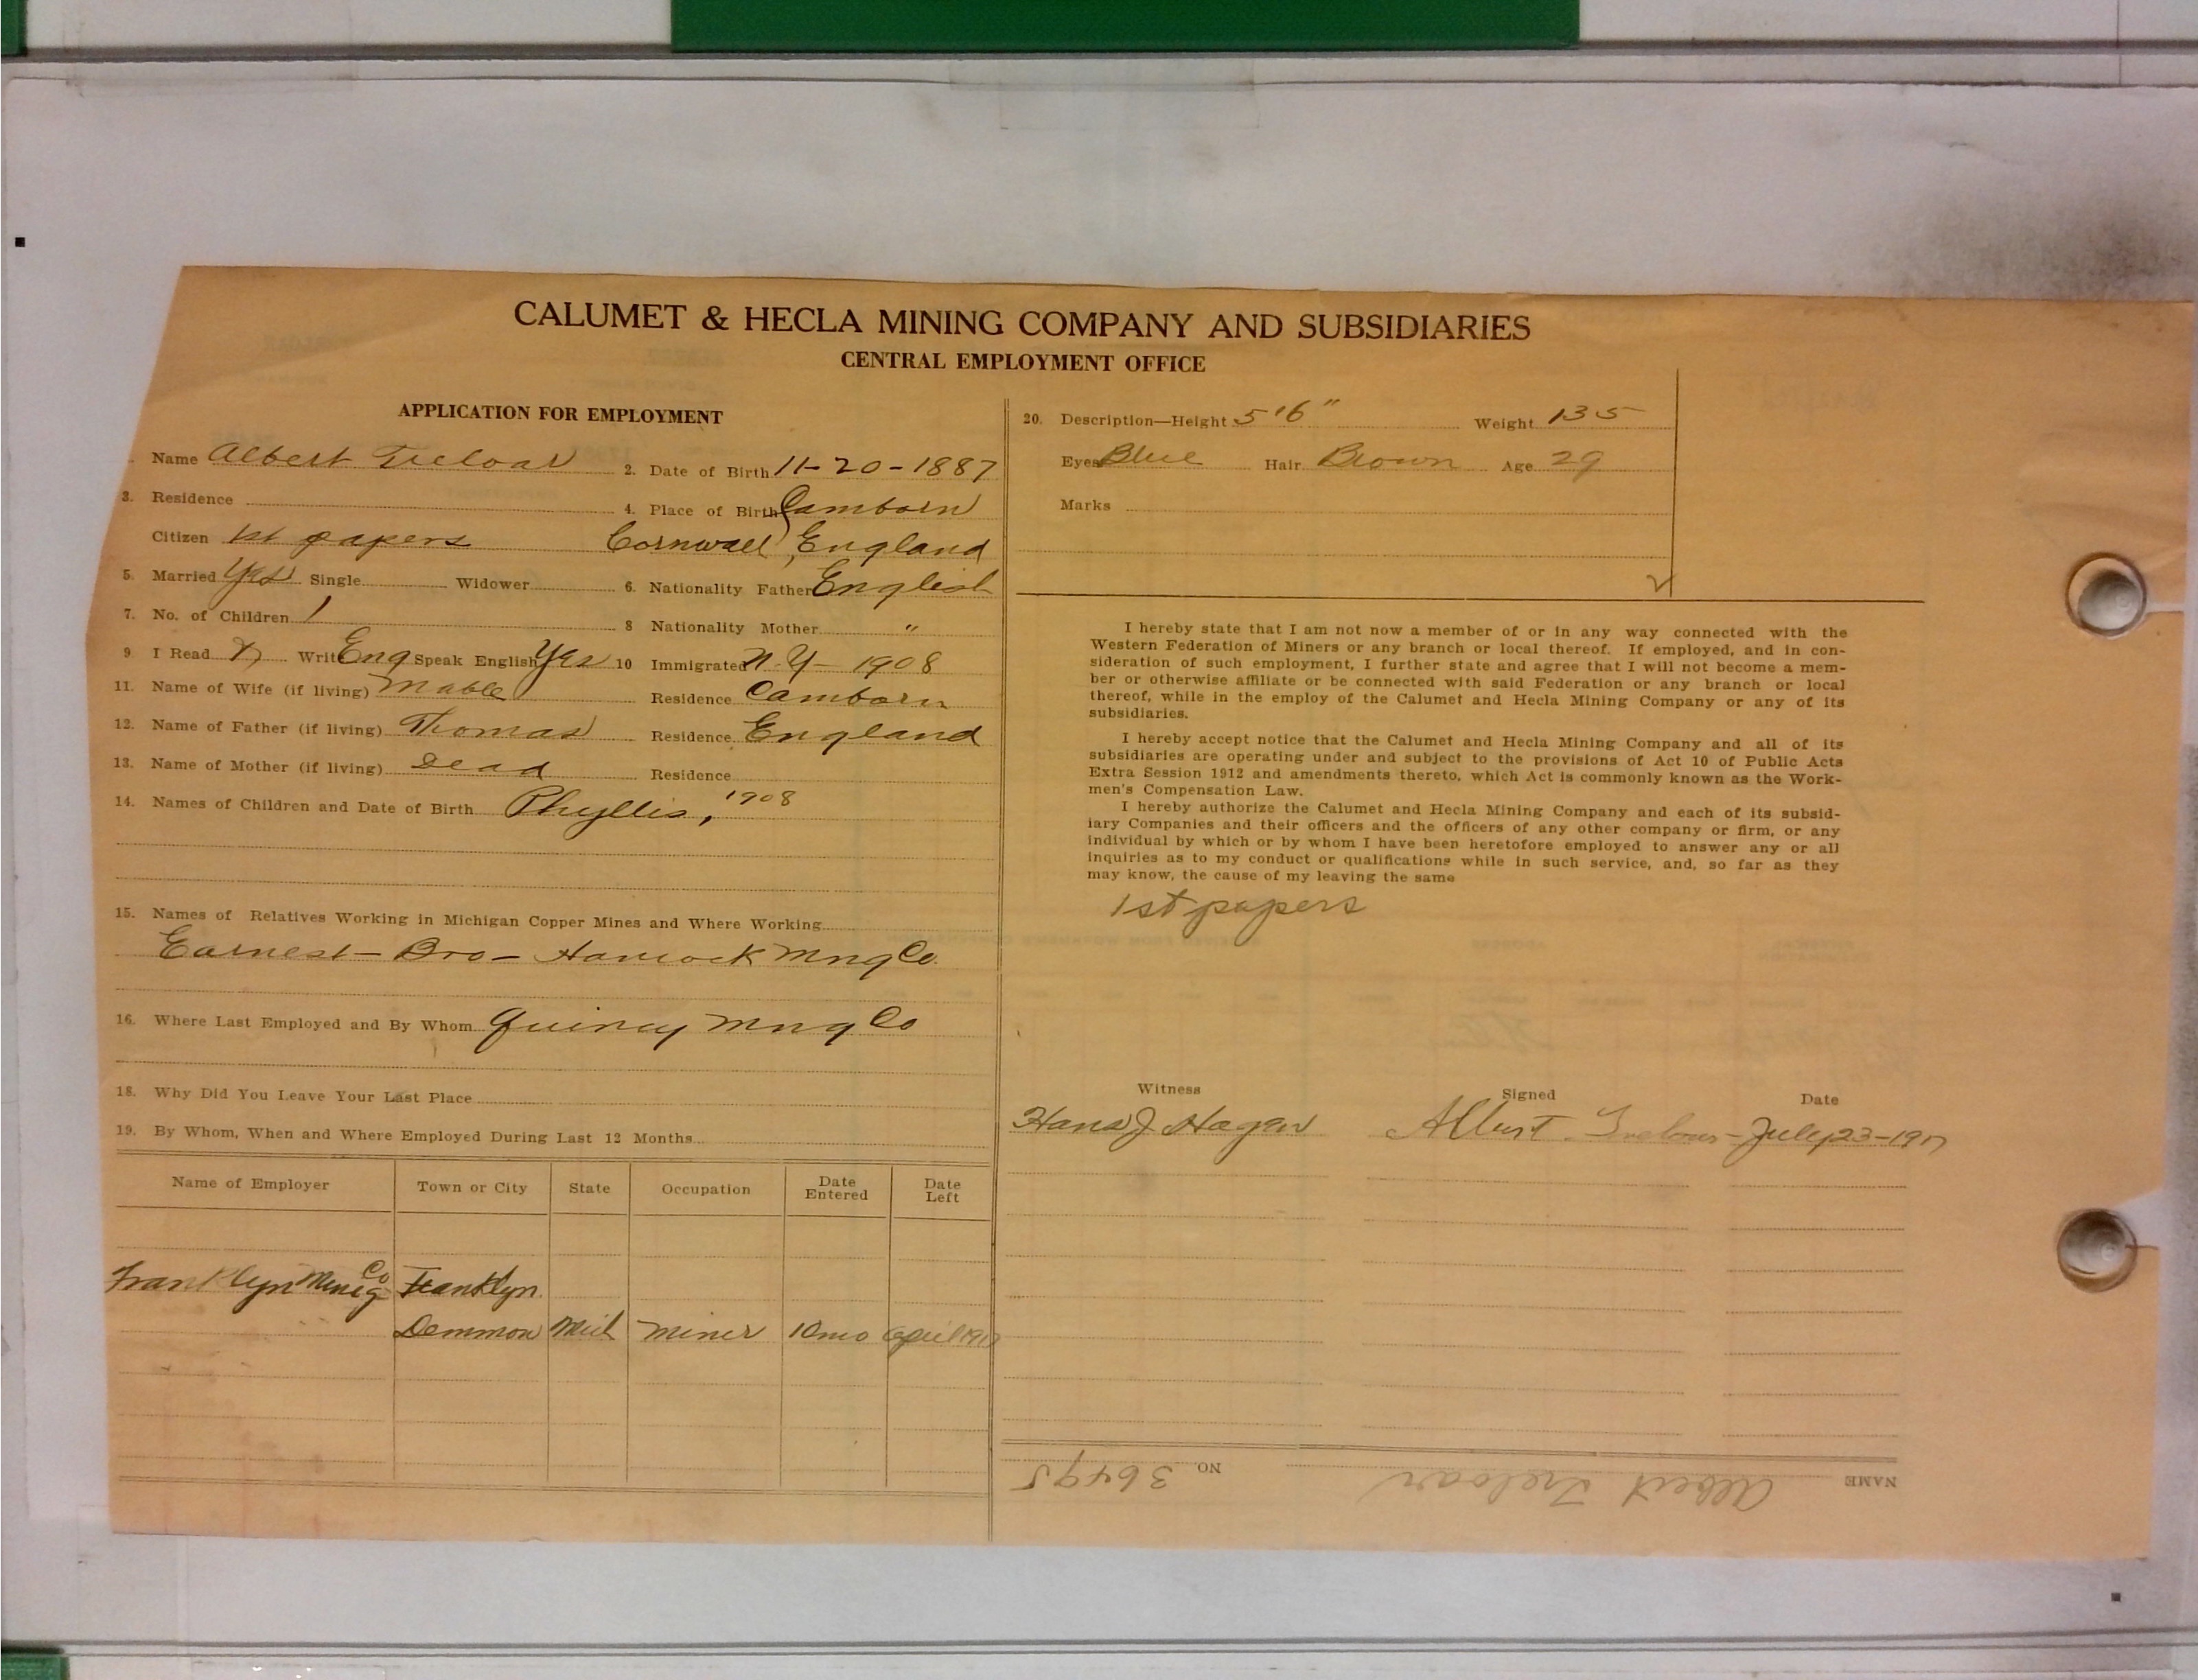 CALUMET & HECLA MINING COMPANY AND SUBSIDIARIES
CENTRAL EMPLOYMENT OFFICE
APPLICATION FOR EMPLOYMENT
Name Albert Treloar 2. Date of Birth 11-20-1887
3. Residence 4. Place of Birth Camborn
Citizen 1st papers Cornwall, England
5. Married Yes Single Widower 6. Nationality Father English
7. No. of Children 1 8 Nationality Mother "
9 I Read Write Eng Speak English Yes 10 Immigrated N.Y - 1908
11. Name of Wife (if living) Mable Residence Camborn
12. Name of Father (if living) Thomas Residence England
13. Name of Mother (if living) Dead Residence
14. Names of Children and Date of Birth Phyllis, 1908
15. Names of Relatives Working in Michigan Copper Mines and Where Working
Earnest - Bro - Hancock Mng Co.
16. Where Last Employed and By Whom Quincy Mng Co
18. Why Did You Leave Your Last Place
19. By Whom, When and Where Employed During Last 12 Months
Name of Employer Town or City State Occupation Date Entered Date Left
Franklyn Mineg Co Franklyn
Demmon Mich Miner 10mo April 1917
20. Description—Height 5'6" Weight 135
Eyes Blue Hair Brown Age 29
Marks
I hereby state that I am not now a member of or in any way connected with the
Western Federation of Miners or any branch or local thereof. If employed, and in con-
sideration of such employment, I further state and agree that I will not become a mem-
ber or otherwise affiliate or be connected with said Federation or any branch or local
thereof, while in the employ of the Calumet and Hecla Mining Company or any of its
subsidiaries.
I hereby accept notice that the Calumet and Hecla Mining Company and all of its
subsidiaries are operating under and subject to the provisions of Act 10 of Public Acts
Extra Session 1912 and amendments thereto, which Act is commonly known as the Work-
men's Compensation Law.
I hereby authorize the Calumet and Hecla Mining Company and each of its subsid-
iary Companies and their officers and the officers of any other company or firm, or any
individual by which or by whom I have been heretofore employed to answer any or all
inquiries as to my conduct or qualifications while in such service, and, so far as they
may know, the cause of my leaving the same
1st papers
Witness Signed Date
Hans J Hagen Albert Treloar - July 23-1917
NAME Albert Treloar NO. 36495